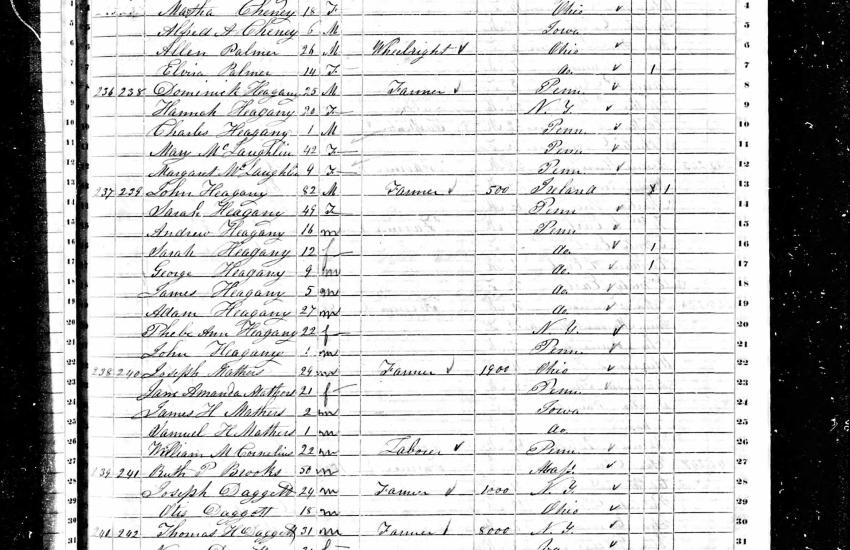 Martha Cheney 18 F Ohio 4
5 Alfred A Cheney 6 M Iowa 5
6 Allen Palmer 26 M Wheelright Ohio 6
7 Elvira Palmer 14 F do. 1 7
8 236 238 Dominick Heagany 25 M Farmer Penn 8
9 Hannah Heagany 20 F N. Y. 9
10 Charles Heagany 1 M Penn 10
11 Mary McLaughlin 42 F Penn 11
12 Margaret McLaughlin 9 F Penn 12
13 237 239 John Heagany 82 M Farmer 500 Ireland 1 13
14 Sarah Heagany 49 F Penn 14
15 Andrew Heagany 16 m Penn 15
16 Sarah Heagany 12 f do. 1 16
17 George Heagany 9 m do. 1 17
18 James Heagany 5 m do. 18
19 Adam Heagany 27 m do. 19
20 Phebe Ann Heagany 22 f N. Y. 20
21 John Heagany 1 m Penn 21
22 238 240 Joseph Mathers 29 m Farmer 1900 Ohio 22
23 Jane Amanda Mathers 21 f Penn 23
24 James H Mathers 2 m Iowa 24
25 Samuel H Mathers 1 m do 25
26 William M Cornelius 22 m Laborer Penn 26
27 139 241 Ruth P Brooks 50 m Mass. 27
28 Joseph Daggett 24 m Farmer 1000 N. Y. 28
29 Otis Daggett 18 m Ohio 29
30 241 242 Thomas H Daggett 31 m Farmer 8000 N. Y. 30
31 31